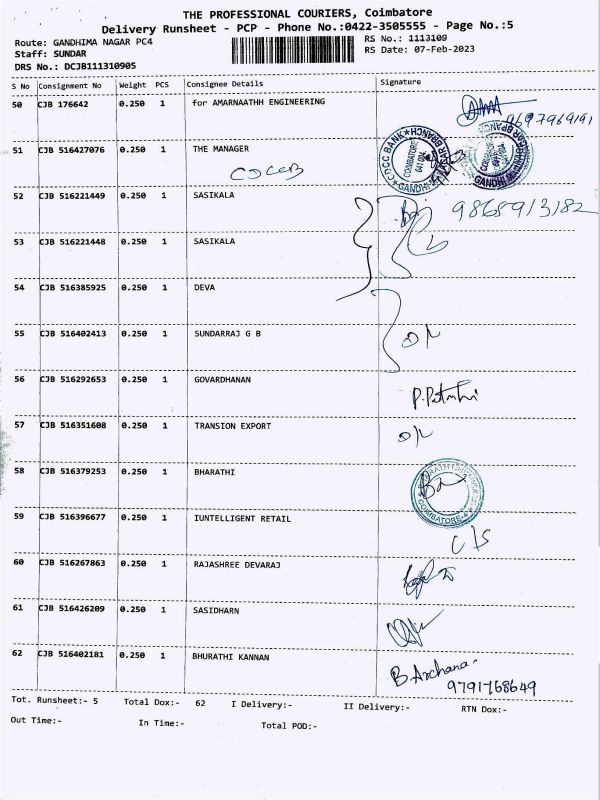 THE PROFESSIONAL COURIERS, Coimbatore
Delivery Runsheet - PCP - Phone No.:0422-3505555 - Page No.:5
Route: GANDHIMA NAGAR PC4
RS No.: 1113109
Staff: SUNDAR
RS Date: 07-Feb-2023
DRS No.: DCJB111310905
S No Consignment No Weight PCS Consignee Details Signature
50 CJB 176642 0.250 1 for AMARNAATHH ENGINEERING
9697969191
51 CJB 516427076 0.250 1 THE MANAGER
CDCCB
CDCC BANK GANDHI BRANCH
COIMBATORE
52 CJB 516221449 0.250 1 SASIKALA
9865913182
53 CJB 516221448 0.250 1 SASIKALA
54 CJB 516385925 0.250 1 DEVA
55 CJB 516402413 0.250 1 SUNDARRAJ G B
O/L
56 CJB 516292653 0.250 1 GOVARDHANAN
57 CJB 516351608 0.250 1 TRANSION EXPORT
O/L
58 CJB 516379253 0.250 1 BHARATHI
COIMBATORE
59 CJB 516396677 0.250 1 IUNTELLIGENT RETAIL
C/S
60 CJB 516267863 0.250 1 RAJASHREE DEVARAJ
61 CJB 516426209 0.250 1 SASIDHARN
62 CJB 516402181 0.250 1 BHURATHI KANNAN
B.Archana
9791768649
Tot. Runsheet:- 5 Total Dox:- 62 I Delivery:- II Delivery:- RTN Dox:-
Out Time:- In Time:- Total POD:-